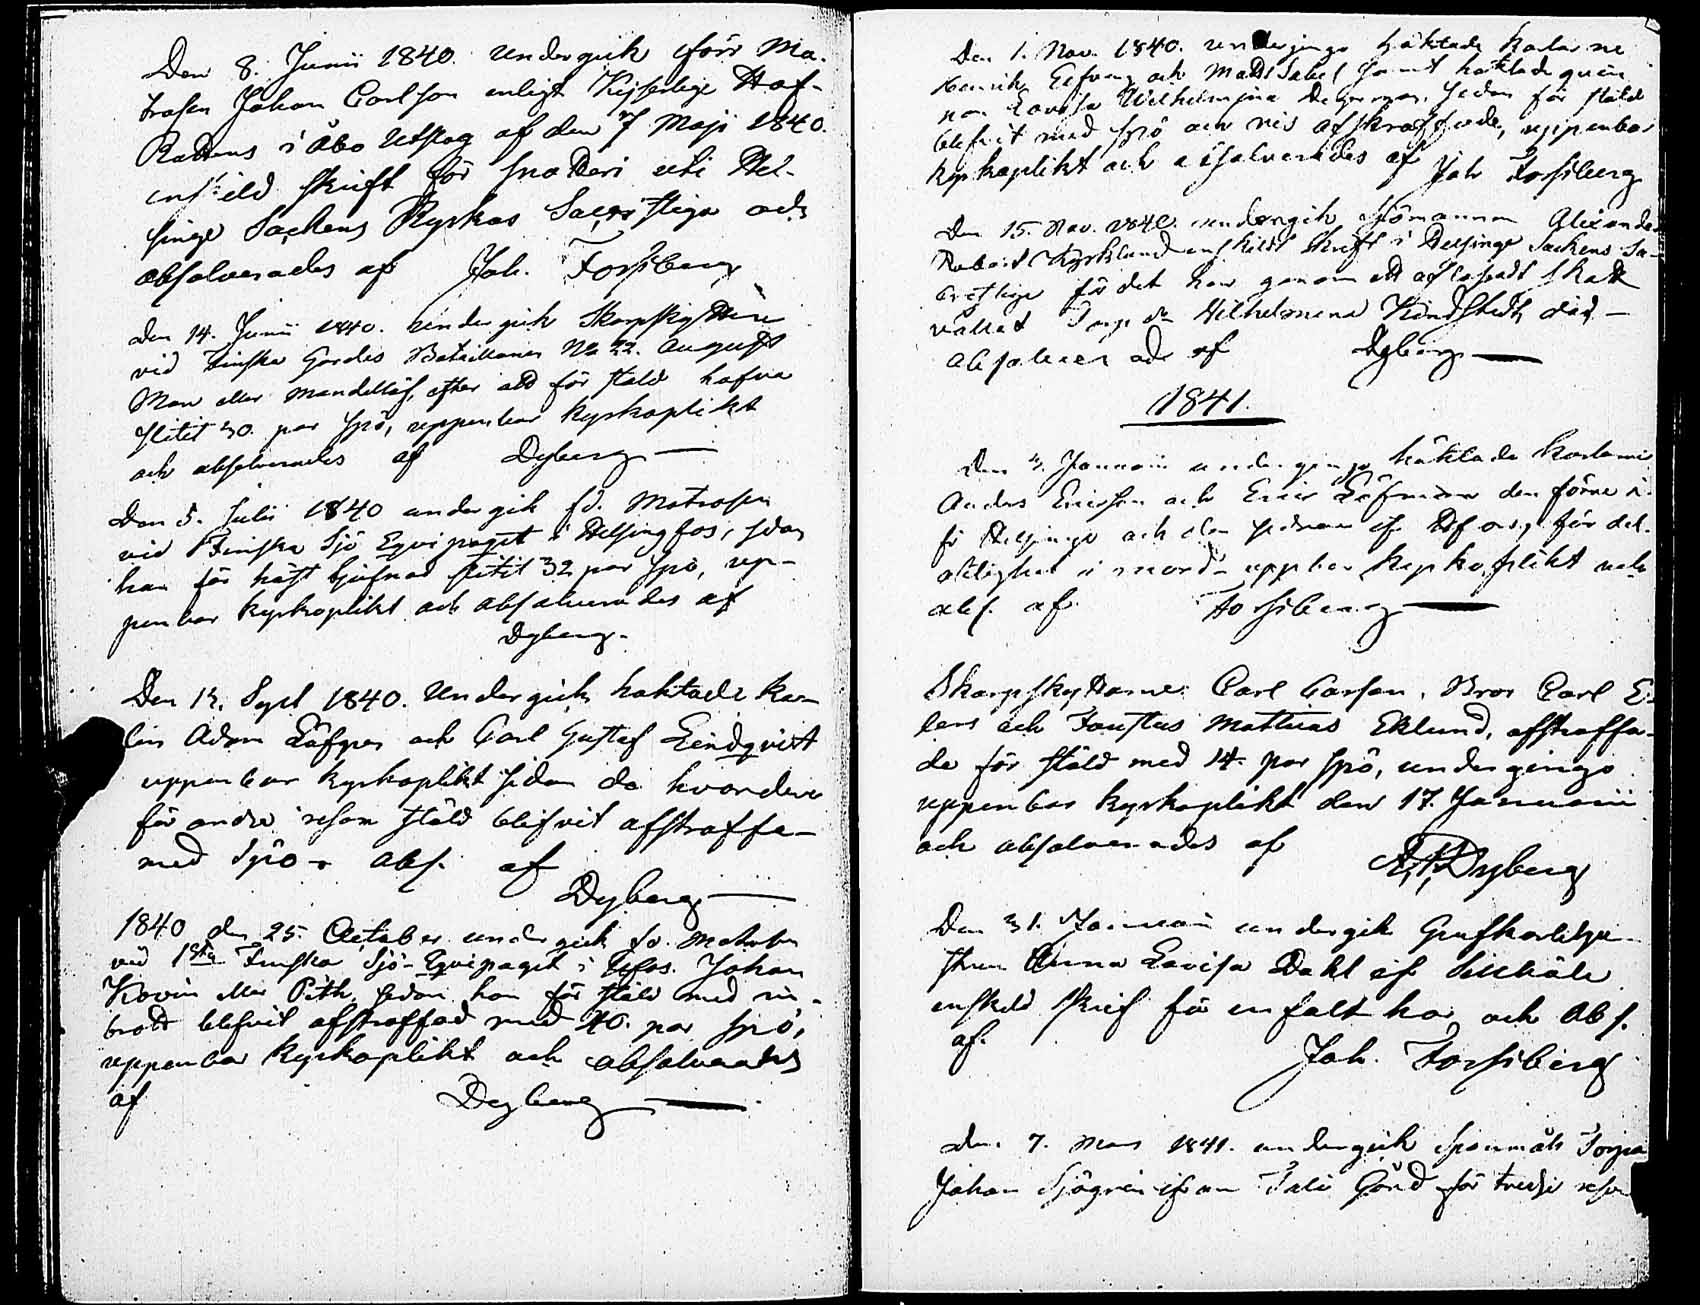 Den 8. Junii 1840. undergick förr Ma-
trosen Johan Carlson enligt Kejserlige Hof-
Rättens i Åbo Utslag af den 7 Maji 1840.
enskild skrift för snatteri uti Hel-
singe Sockens Kyrkas Sacristiga och
absolverades af Joh. Forssberg
den 14. Junii 1840. undergick Skarpskytten
vid Finska Gardes Bataillonen No 22. August
Man eller Mandellöf, efter att för stöld hafva
slitit 30. par spö, uppenbar kyrkoplikt
och absolverades af Dyberg
Den 5. Julii 1840 undergik fd. Matrosen
vid Finska Sjö Eqvipaget i Helsingfos, sedan
han för tjufnad slitit 32 par spö, up-
penbar kyrkoplikt och absolverades af
Dyberg.
Den 13. Sept 1840. Undergick häktade kar-
len Adam Löfgren och Carl Gustaf Lindqvist
uppenbar kyrkoplikt sedan de hvardera
för andre resan stöld blifvit afstraffa-
med Spö. Abs. af
Dyberg
1840 den 25. October undergick fd. Matrosen
vid 1sta Finska Sjö-Eqvipaget i Hfors. Johan
sedan han för stöld med in-
brott blifvit afstraffad med 40. par spö,
uppenbar kyrkoplikt och absolverades
af Dyberg
Den 1. Nov. 1840. undergingo häktade karlarne
Henrik och Matts Sabel samt häktade qvin
nan Lovisa Wilhelmina sedan för stöld
blifvit med spö och ris afstraffade, uppenbar
kyrkoplikt och absolverades af Joh Forssberg
Den 15. Nov. 1840. undergik Sjömannen Alexander
Robert Kyrklund enskildt skrift i Helsinge Sockens Sa-
cristige för det han genom ett aflossadt skott
vållat Wilhelmina död
absolverades af Dyberg
1841.
Den 3. Januarii undergingo häktade karlarne
Anders Ericsson och Eric Löfman den förre i-
från Helsinge och den sednare för del-
aktighet i mord uppbar kyrkoplikt och
abs. af Forssberg
Skarpskyttarne: Carl Carlson, Bror Carl E-
lers och Faustus Mathias Eklund, afstraffa-
de för stöld med 14. par spö, undergingo
uppenbar kyrkoplikt den 17. Januarii
och absolverades af Dyberg
Den 31. Januarii undergik
Anna Lovisa Dahl
enskild skrif för enfalt hor och Abs.
af. Joh. Forssberg
Den 7. Mars 1841. undergick
Johan Sjögren ifrån Tali Gård för tredje resan